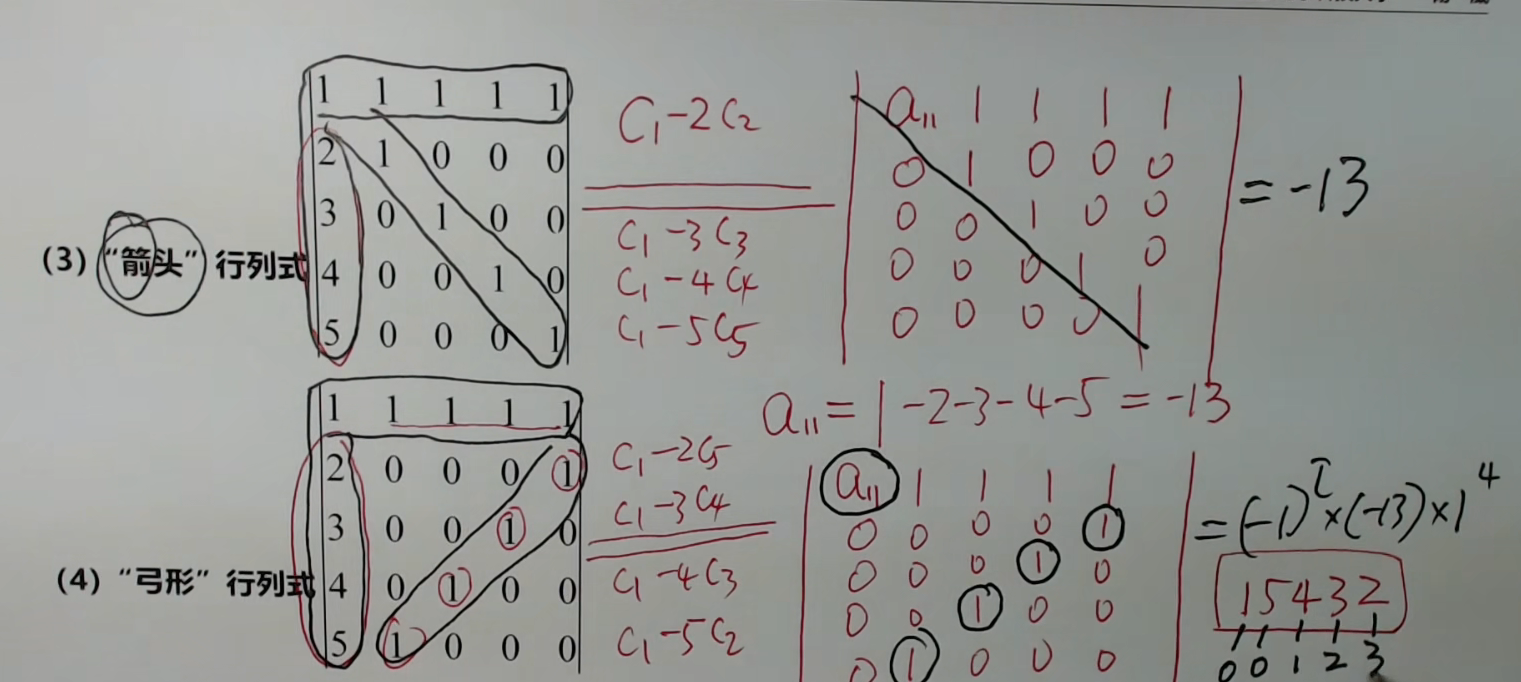 (3) “箭头” 行列式
1 1 1 1 1
2 1 0 0 0
3 0 1 0 0
4 0 0 1 0
5 0 0 0 1
C₁-2C₂
C₁-3C₃
C₁-4C₄
C₁-5C₅
a₁₁ 1 1 1 1
0 1 0 0 0
0 0 1 0 0
0 0 0 1 0
0 0 0 0 1
= -13
a₁₁ = 1-2-3-4-5 = -13
(4) “弓形” 行列式
1 1 1 1 1
2 0 0 0 1
3 0 0 1 0
4 0 1 0 0
5 1 0 0 0
C₁-2C₅
C₁-3C₄
C₁-4C₃
C₁-5C₂
a₁₁ 1 1 1 1
0 0 0 0 1
0 0 0 1 0
0 0 1 0 0
0 1 0 0 0
= (-1)^τ×(-13)×1⁴
15432
0 0 1 2 3